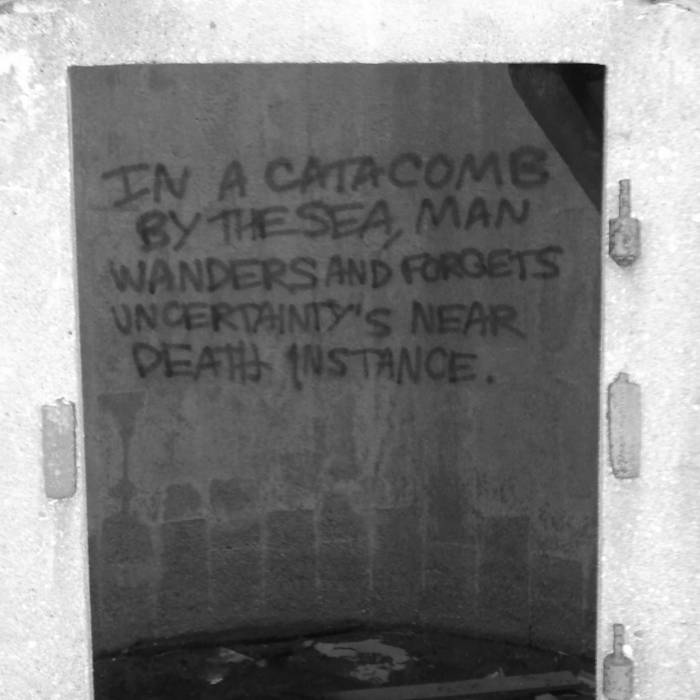 IN A CATACOMB
BY THE SEA, MAN
WANDERS AND FORGETS
UNCERTAINTY'S NEAR
DEATH INSTANCE.